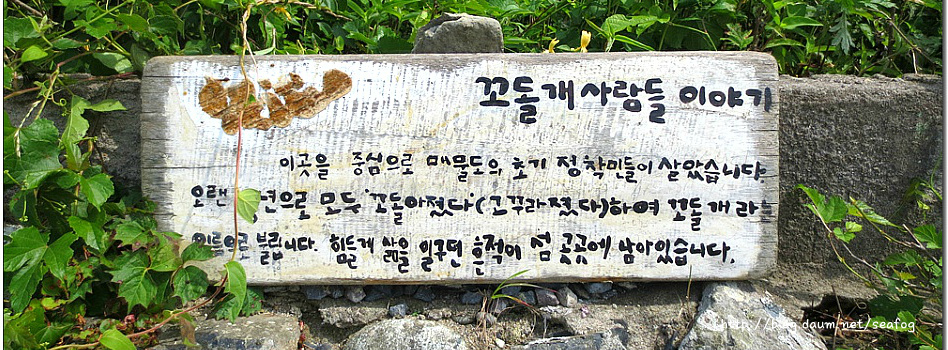 꼬돌개 사람들 이야기
이곳을 중심으로 매물도의 초기 정착민들이 살았습니다.
오랜 흉년으로 모두 '꼬돌아졌다'(고꾸라졌다)하여 꼬돌개라는
이름으로 불립니다. 힘들게 삶을 일구던 흔적이 섬 곳곳에 남아있습니다.
http://blog.daum.net/seafog